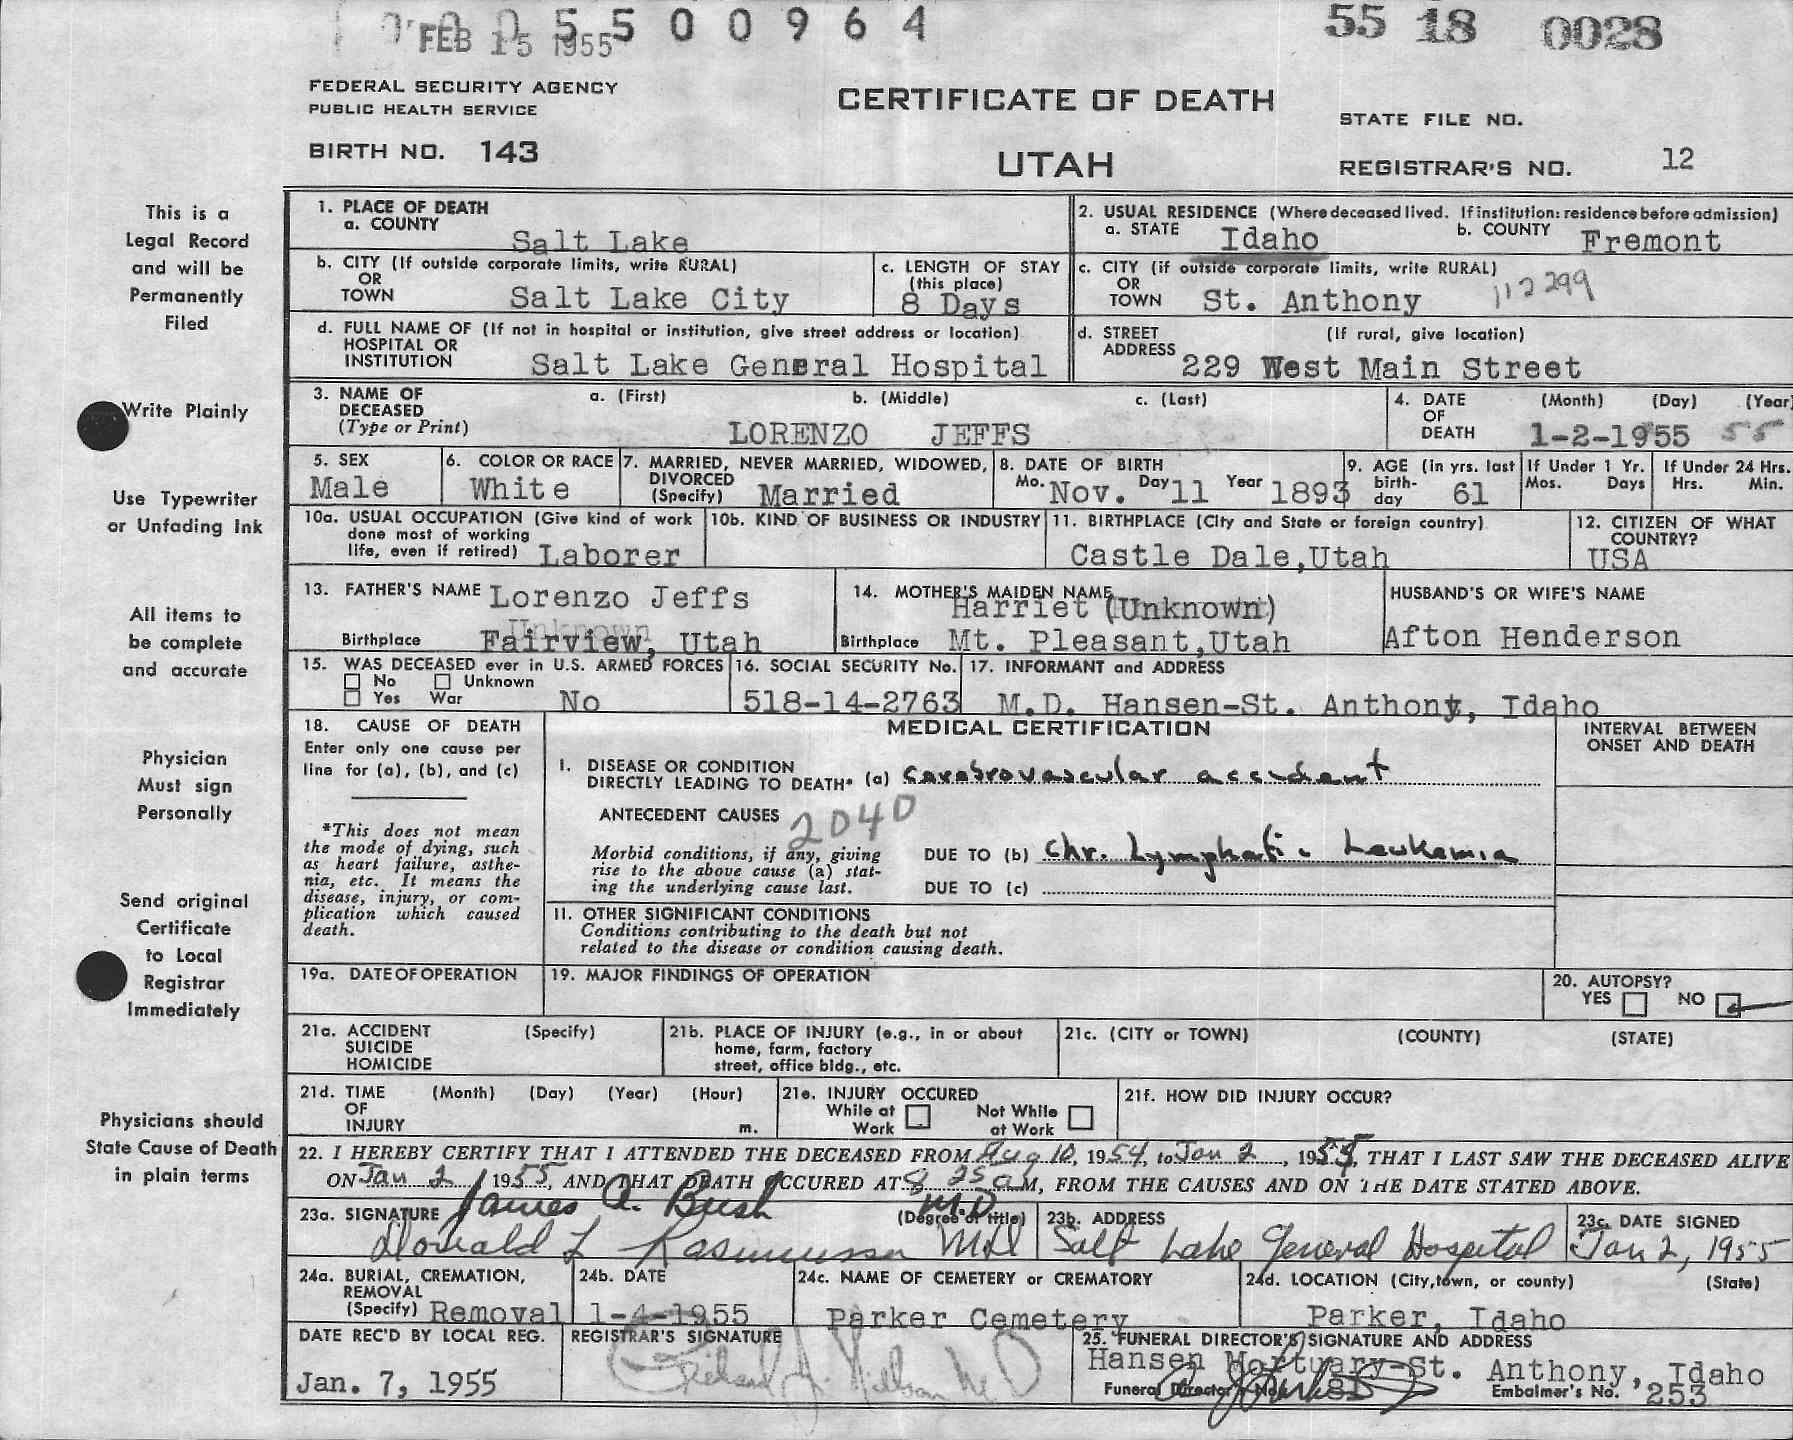 FEB 15 1955
5500964
55 18 0028
FEDERAL SECURITY AGENCY
PUBLIC HEALTH SERVICE
BIRTH NO. 143
CERTIFICATE OF DEATH
UTAH
STATE FILE NO.
REGISTRAR'S NO. 12
This is a
Legal Record
and will be
Permanently
Filed
Write Plainly
Use Typewriter
or Unfading Ink
All items to
be complete
and accurate
Physician
Must sign
Personally
Send original
Certificate
to Local
Registrar
Immediately
Physicians should
State Cause of Death
in plain terms
1. PLACE OF DEATH
a. COUNTY Salt Lake
2. USUAL RESIDENCE (Where deceased lived. If institution: residence before admission)
a. STATE Idaho b. COUNTY Fremont
b. CITY (If outside corporate limits, write RURAL)
OR
TOWN Salt Lake City
c. LENGTH OF STAY
(this place)
8 Days
c. CITY (if outside corporate limits, write RURAL)
OR
TOWN St. Anthony 112299
d. FULL NAME OF (If not in hospital or institution, give street address or location)
HOSPITAL OR
INSTITUTION Salt Lake General Hospital
d. STREET (If rural, give location)
ADDRESS 229 West Main Street
3. NAME OF a. (First) b. (Middle) c. (Last)
DECEASED
(Type or Print) LORENZO JEFFS
4. DATE (Month) (Day) (Year)
OF
DEATH 1-2-1955 55
5. SEX
Male
6. COLOR OR RACE
White
7. MARRIED, NEVER MARRIED, WIDOWED,
DIVORCED
(Specify) Married
8. DATE OF BIRTH
Mo. Nov. Day 11 Year 1893
9. AGE (in yrs. last
birth-
day 61
If Under 1 Yr.
Mos. Days
If Under 24 Hrs.
Hrs. Min.
10a. USUAL OCCUPATION (Give kind of work
done most of working
life, even if retired) Laborer
10b. KIND OF BUSINESS OR INDUSTRY
11. BIRTHPLACE (City and State or foreign country)
Castle Dale,Utah
12. CITIZEN OF WHAT
COUNTRY?
USA
13. FATHER'S NAME Lorenzo Jeffs
Unknown
Birthplace Fairview, Utah
14. MOTHER'S MAIDEN NAME
Harriet (Unknown)
Birthplace Mt. Pleasant,Utah
HUSBAND'S OR WIFE'S NAME
Afton Henderson
15. WAS DECEASED ever in U.S. ARMED FORCES
No Unknown
Yes War No
16. SOCIAL SECURITY No.
518-14-2763
17. INFORMANT and ADDRESS
M.D. Hansen-St. Anthony, Idaho
18. CAUSE OF DEATH
Enter only one cause per
line for (a), (b), and (c)
*This does not mean
the mode of dying, such
as heart failure, asthe-
nia, etc. It means the
disease, injury, or com-
plication which caused
death.
MEDICAL CERTIFICATION
INTERVAL BETWEEN
ONSET AND DEATH
I. DISEASE OR CONDITION
DIRECTLY LEADING TO DEATH* (a) cerebrovascular accident
ANTECEDENT CAUSES 2040
Morbid conditions, if any, giving
rise to the above cause (a) stat-
ing the underlying cause last.
DUE TO (b) Chr. Lymphatic Leukemia
DUE TO (c)
II. OTHER SIGNIFICANT CONDITIONS
Conditions contributing to the death but not
related to the disease or condition causing death.
19a. DATE OF OPERATION
19. MAJOR FINDINGS OF OPERATION
20. AUTOPSY?
YES NO
21a. ACCIDENT (Specify)
SUICIDE
HOMICIDE
21b. PLACE OF INJURY (e.g., in or about
home, farm, factory
street, office bldg., etc.
21c. (CITY or TOWN) (COUNTY) (STATE)
21d. TIME (Month) (Day) (Year) (Hour)
OF
INJURY m.
21e. INJURY OCCURED
While at Work Not While at Work
21f. HOW DID INJURY OCCUR?
22. I HEREBY CERTIFY THAT I ATTENDED THE DECEASED FROM Aug 10, 1954, to Jan 2, 1955, THAT I LAST SAW THE DECEASED ALIVE
ON Jan 2, 1955, AND THAT DEATH OCCURED AT 8 25 a M, FROM THE CAUSES AND ON THE DATE STATED ABOVE.
23a. SIGNATURE James A. Bush M.D.
(Degree or title)
Donald L Rasmussen MD
23b. ADDRESS
Salt Lake General Hospital
23c. DATE SIGNED
Jan 2, 1955
24a. BURIAL, CREMATION,
REMOVAL
(Specify) Removal
24b. DATE
1-4-1955
24c. NAME OF CEMETERY or CREMATORY
Parker Cemetery
24d. LOCATION (City,town, or county) (State)
Parker, Idaho
DATE REC'D BY LOCAL REG.
Jan. 7, 1955
REGISTRAR'S SIGNATURE
25. FUNERAL DIRECTOR'S SIGNATURE AND ADDRESS
Hansen Mortuary-St. Anthony, Idaho
Funeral Director's No.
Embalmer's No. 253